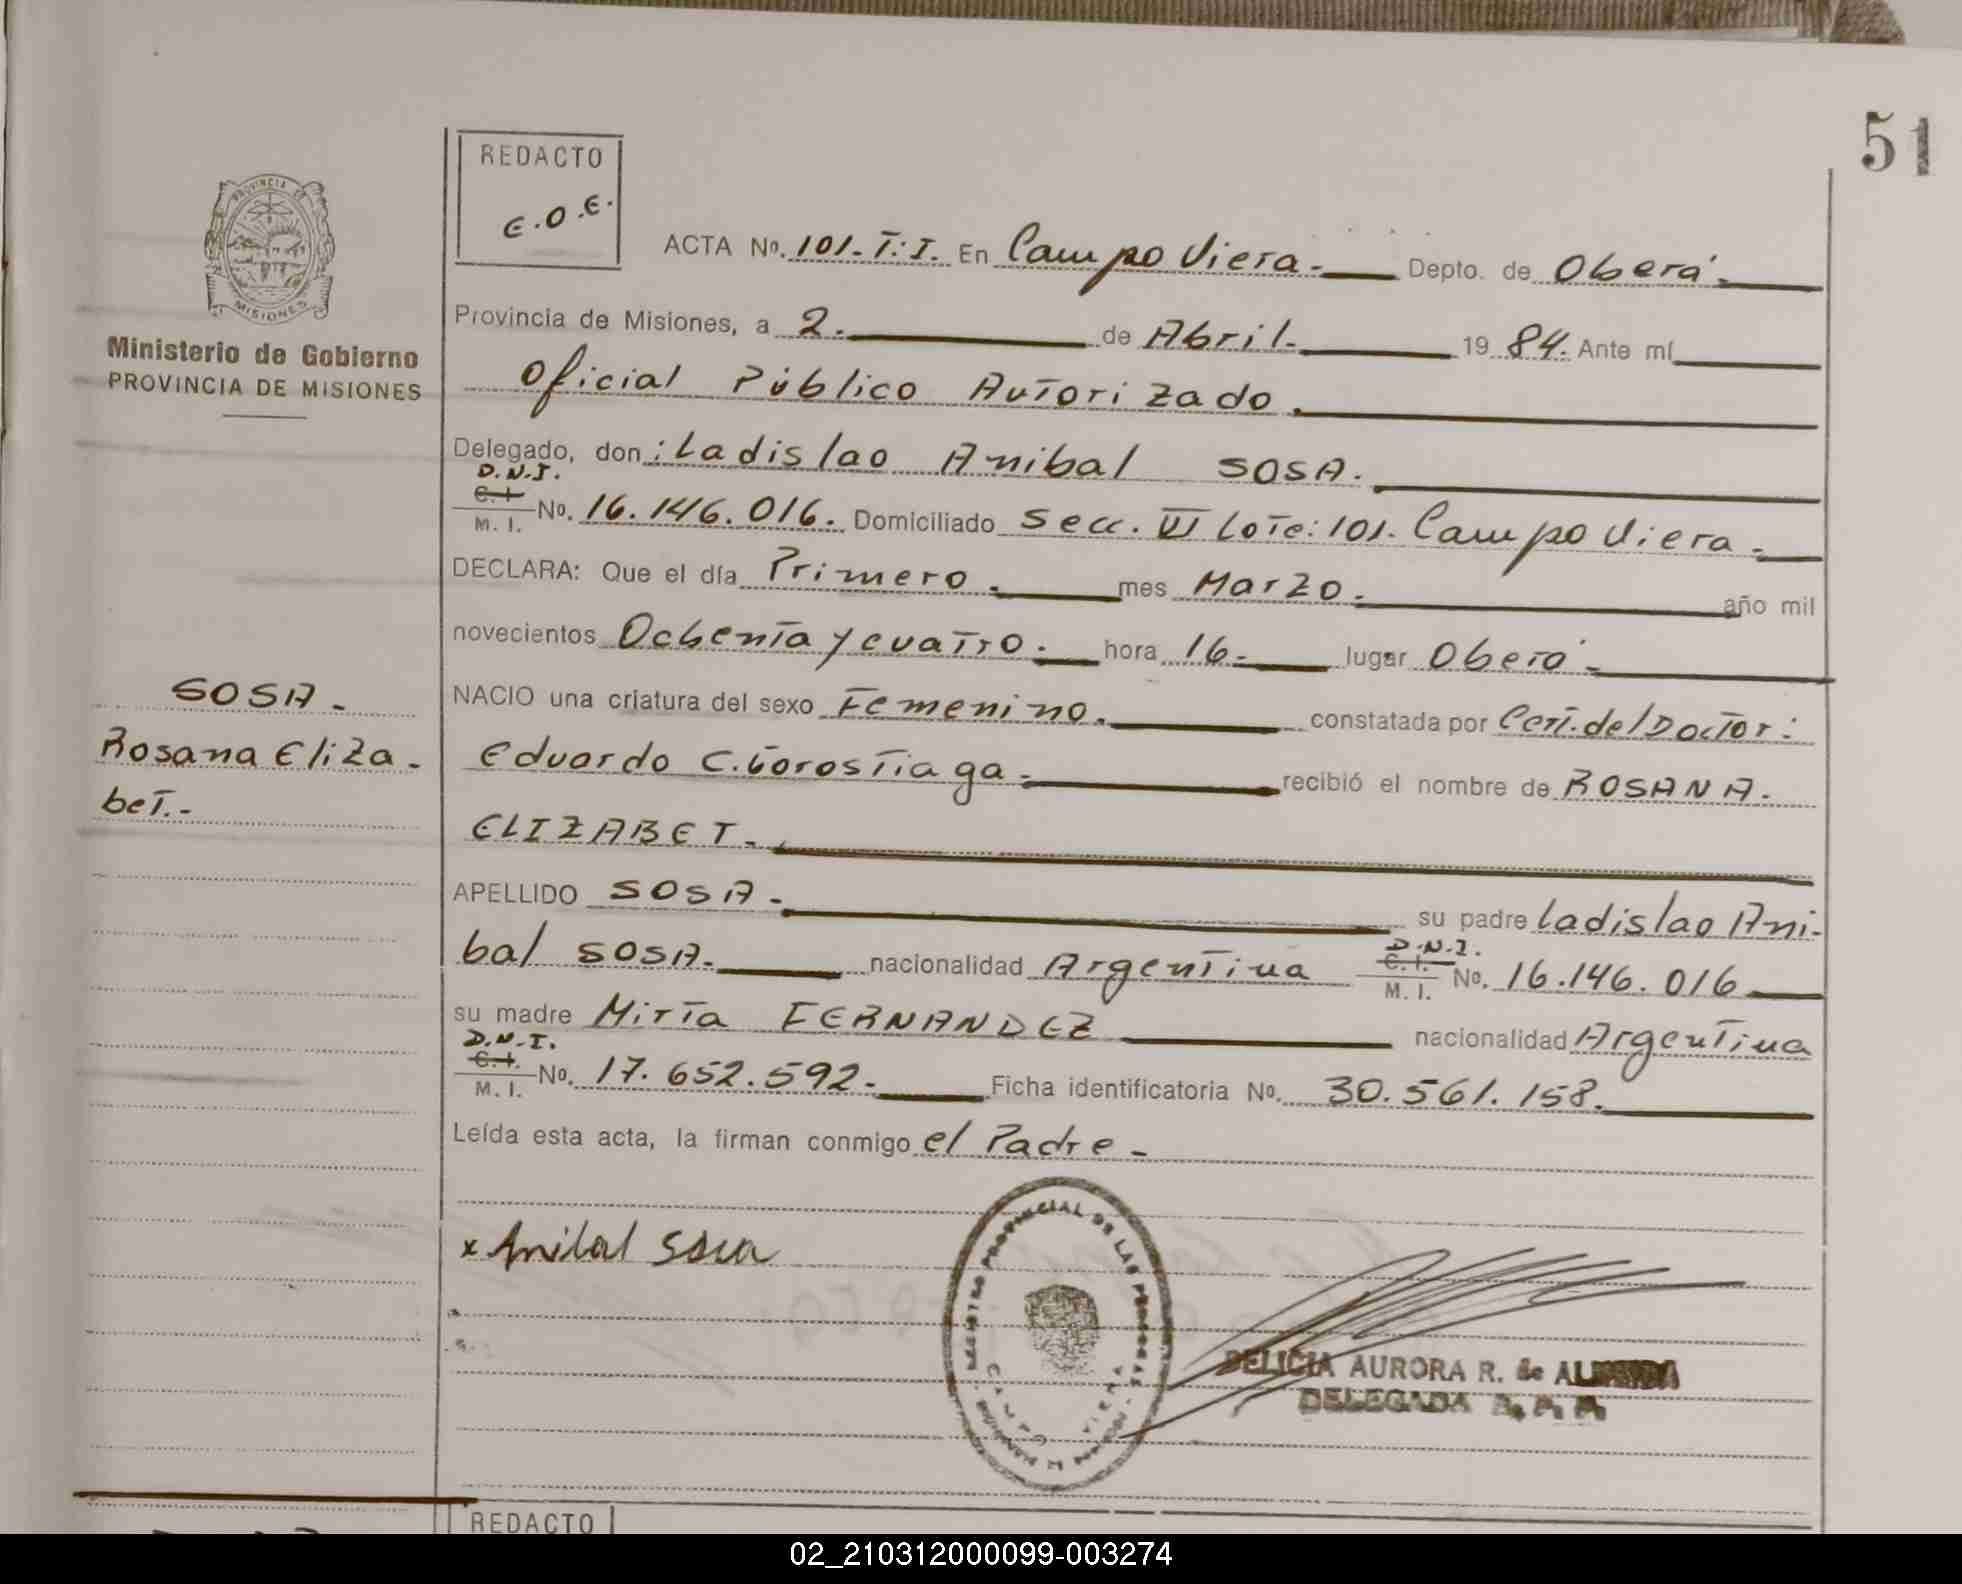 51
REDACTO
E.O.E.
PROVINCIA DE
MISIONES
Ministerio de Gobierno
PROVINCIA DE MISIONES
ACTA Nº. 101-T:I. En Campo Viera.- Depto. de Oberá.-
Provincia de Misiones, a 2.- de Abril.- 1984. Ante mí
Oficial Público Autorizado.
Delegado, don: Ladislao Anibal SOSA.
D.N.I.
C.I.
M. I. Nº. 16.146.016. Domiciliado Secc. VI Lote: 101. Campo Viera.-
DECLARA: Que el día Primero.- mes Marzo.- año mil
novecientos Ochenta y cuatro.- hora 16.- lugar Oberá.-
NACIO una criatura del sexo Femenino.- constatada por Cert. del Doctor:
Eduardo C. Gorostiaga.- recibió el nombre de ROSANA.
ELIZABET.-
APELLIDO SOSA.- su padre Ladislao Ani-
bal SOSA.- nacionalidad Argentina D.N.I.
C.I.
M. I. Nº. 16.146.016
su madre Mirta FERNANDEZ nacionalidad Argentina
D.N.I.
C.I.
M. I. Nº. 17.652.592.- Ficha identificatoria Nº. 30.561.158.
Leída esta acta, la firman conmigo el Padre.-
SOSA.-
Rosana Eliza-
bet.-
x Anibal Sosa
REGISTRO PROVINCIAL DE LAS PERSONAS
CAMPO VIERA
DELICIA AURORA R. de
DELEGADA
REDACTO
02_210312000099-003274